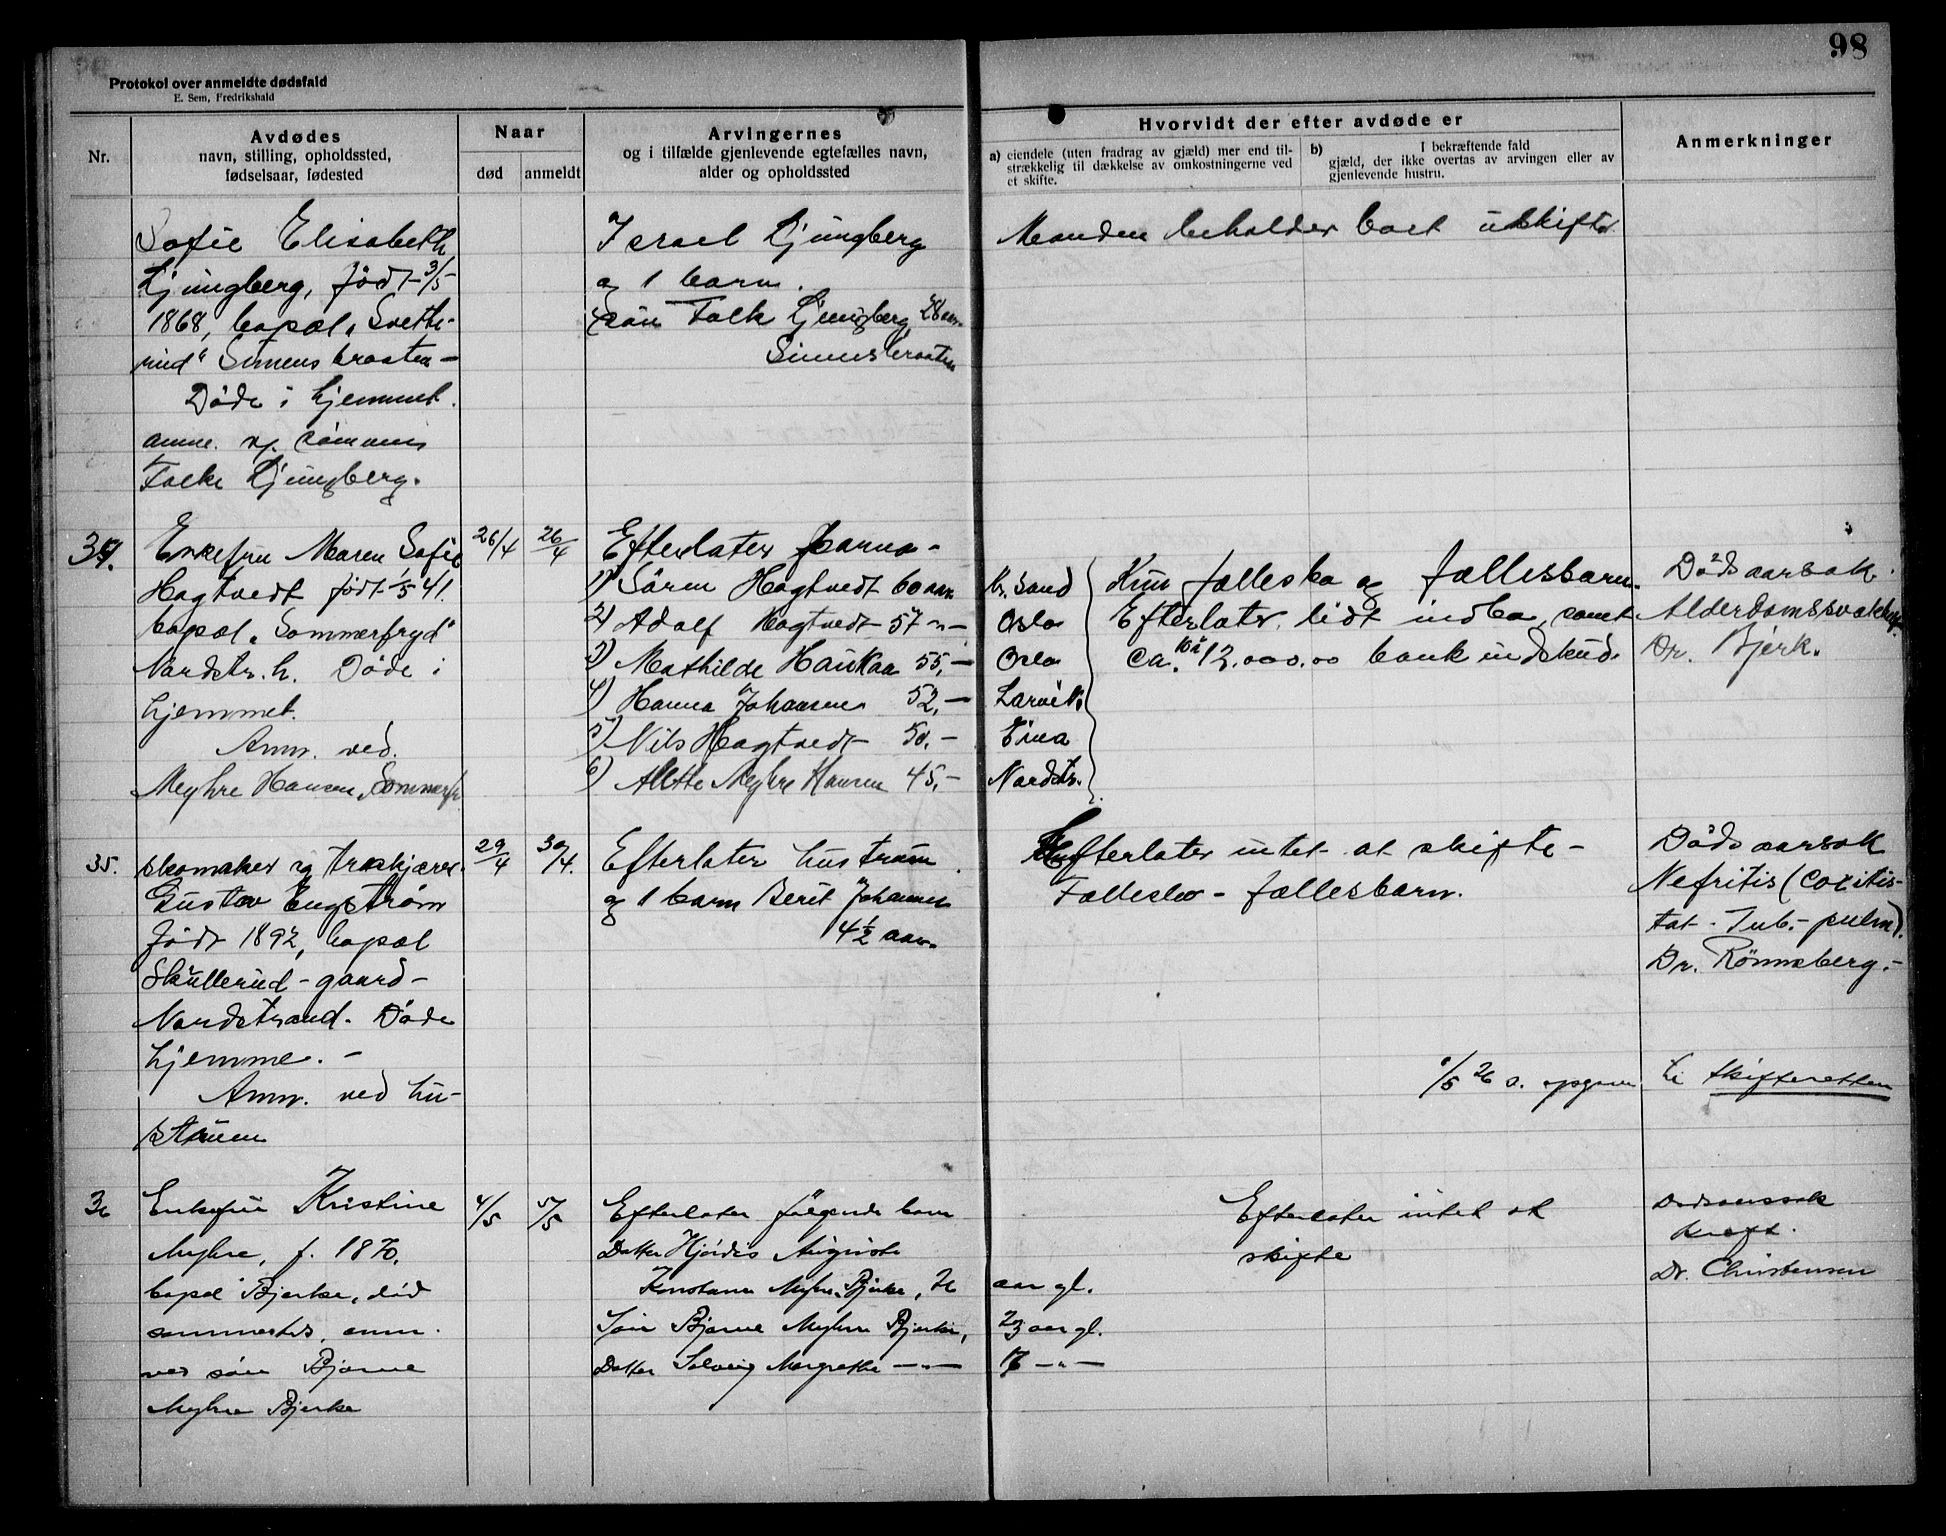 98
Protokol over anmeldte dødsfald
E. Sem, Fredrikshald
Nr.
Avdødes
navn, stilling, opholdssted,
fødselsaar, fødested
Naar
død
anmeldt
Arvingernes
og i tilfælde gjenlevende egtefælles navn,
alder og opholdssted
Hvorvidt der efter avdøde er
a) eiendele (uten fradrag av gjæld) mer end til-
strækkelig til dækkelse av omkostningerne ved
et skifte.
b) I bekræftende fald
gjæld, der ikke overtas av arvingen eller av
gjenlevende hustru.
Anmerkninger
Sofie Elisabeth
Ljungberg, født 3/5
1868, bopæl
Simensbraaten
Døde i hjemmet.
anm. sønnen
Falke Ljungberg.
Israel Ljungberg
og 1 barn.
søn Falk Ljungberg, 28 aar
Simensbraaten
Manden beholder boet uskiftet
34.
Enkefru Maren Sofie
Hagtvedt født 1/5 41.
bopæl "Sommerfryd"
Nordstr. h. Døde i
hjemmet.
Anm. ved.
Myhre Hansen, Sommerfr.
26/4
26/4
Efterlater barna -
1) Søren Hagtvedt 60 aar
2) Adolf Hagtvedt 57 -"-
3) Mathilde Haukaa 55,-
4) Hanna Johansen 52,-
5) Nils Hagtvedt 50.-
6) Alette Myhre Hansen 45,-
Kr. Sand
Oslo
Oslo
Larvik
Eina
Nordstr.
Kun fællesbo og fællesbarn.
Efterlater lidt indbo, samt
ca. kr 12.000.00 bankindskud.
Dødsaarsak.
Alderdomssvakhet.
Dr. Bjerk.
35.
skomaker og træskjærer
Gustav Engstrøm
født 1892, bopæl
Skullerud-gaard-
Nordstrand. Døde
hjemme. -
Anm. ved hu-
struen
29/4
30/4.
Efterlater hustruen
og 1 barn Berit Johanne
4½ aar.
Efterlater intet at skifte -
Fællesbo - fællesbarn.
Dødsaarsak
Nefritis (Coxitis-
tat - Tub. - pulm).
Dr. Rønneberg. -
/5 26 s. opgaven til Skifteretten
36
Enkefru Kristine
Myhre, f. 1870.
bopæl Bjerke, død
sammesteds, anm.
ved søn Bjarne
Myhre Bjerke
4/5
5/5
Efterlater følgende barn
Datter Hjørdis Auguste
Konstance Myhre Bjerke, 26 aar gl.
Søn Bjarne Myhre Bjerke, 23 aar gl.
Datter Solveig Margrethe -"- 17 -"-
Efterlater intet at
skifte
Dødsaarsak
kræft.
Dr. Christensen